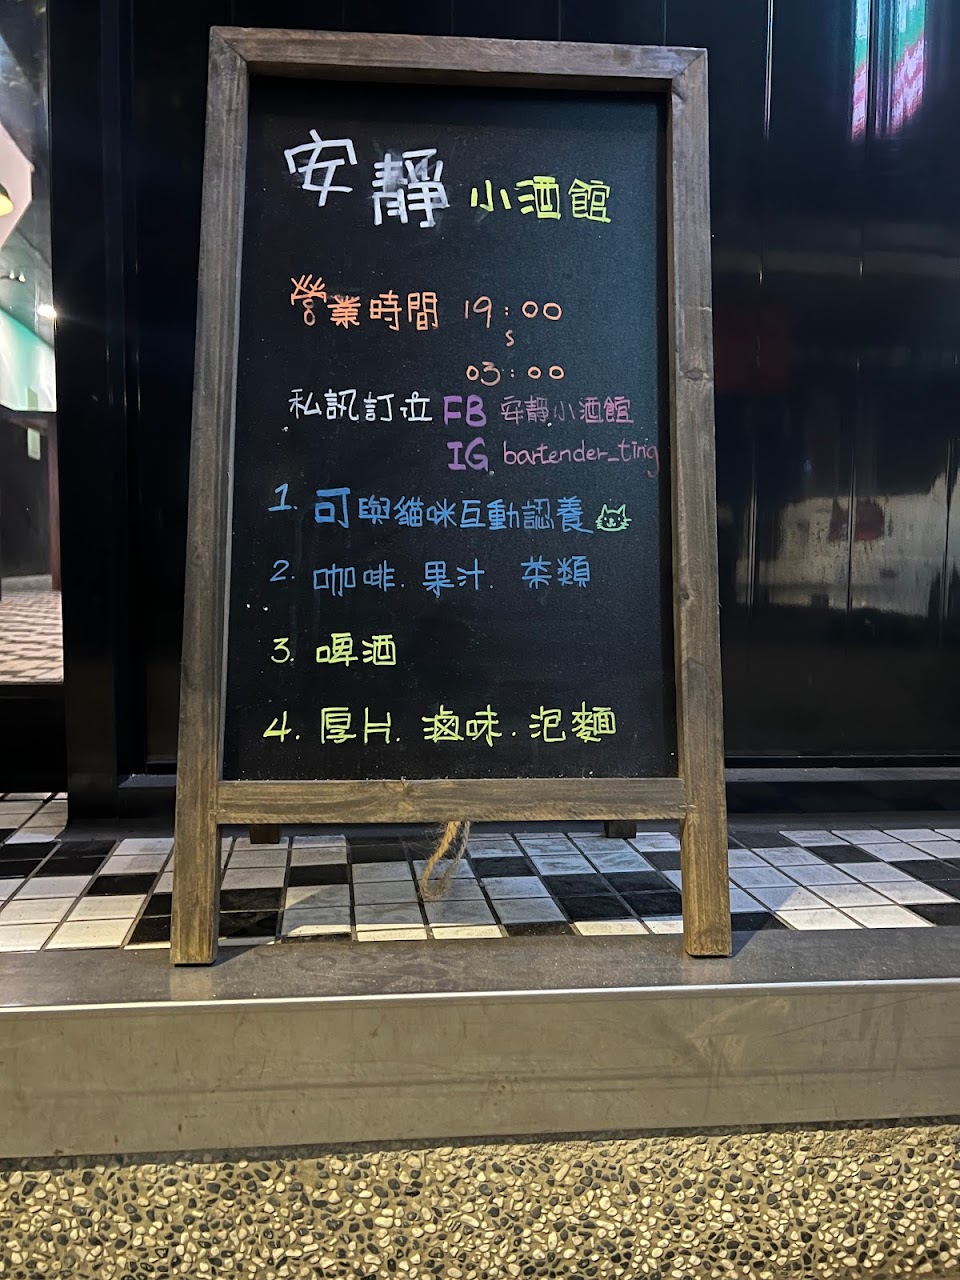 安靜小酒館
營業時間 19:00
s
03:00
私訊訂位 FB 安靜小酒館
IG bartender_ting
1. 可與貓咪互動認養
2. 咖啡. 果汁. 茶類
3. 啤酒
4. 厚片. 滷味. 泡麵